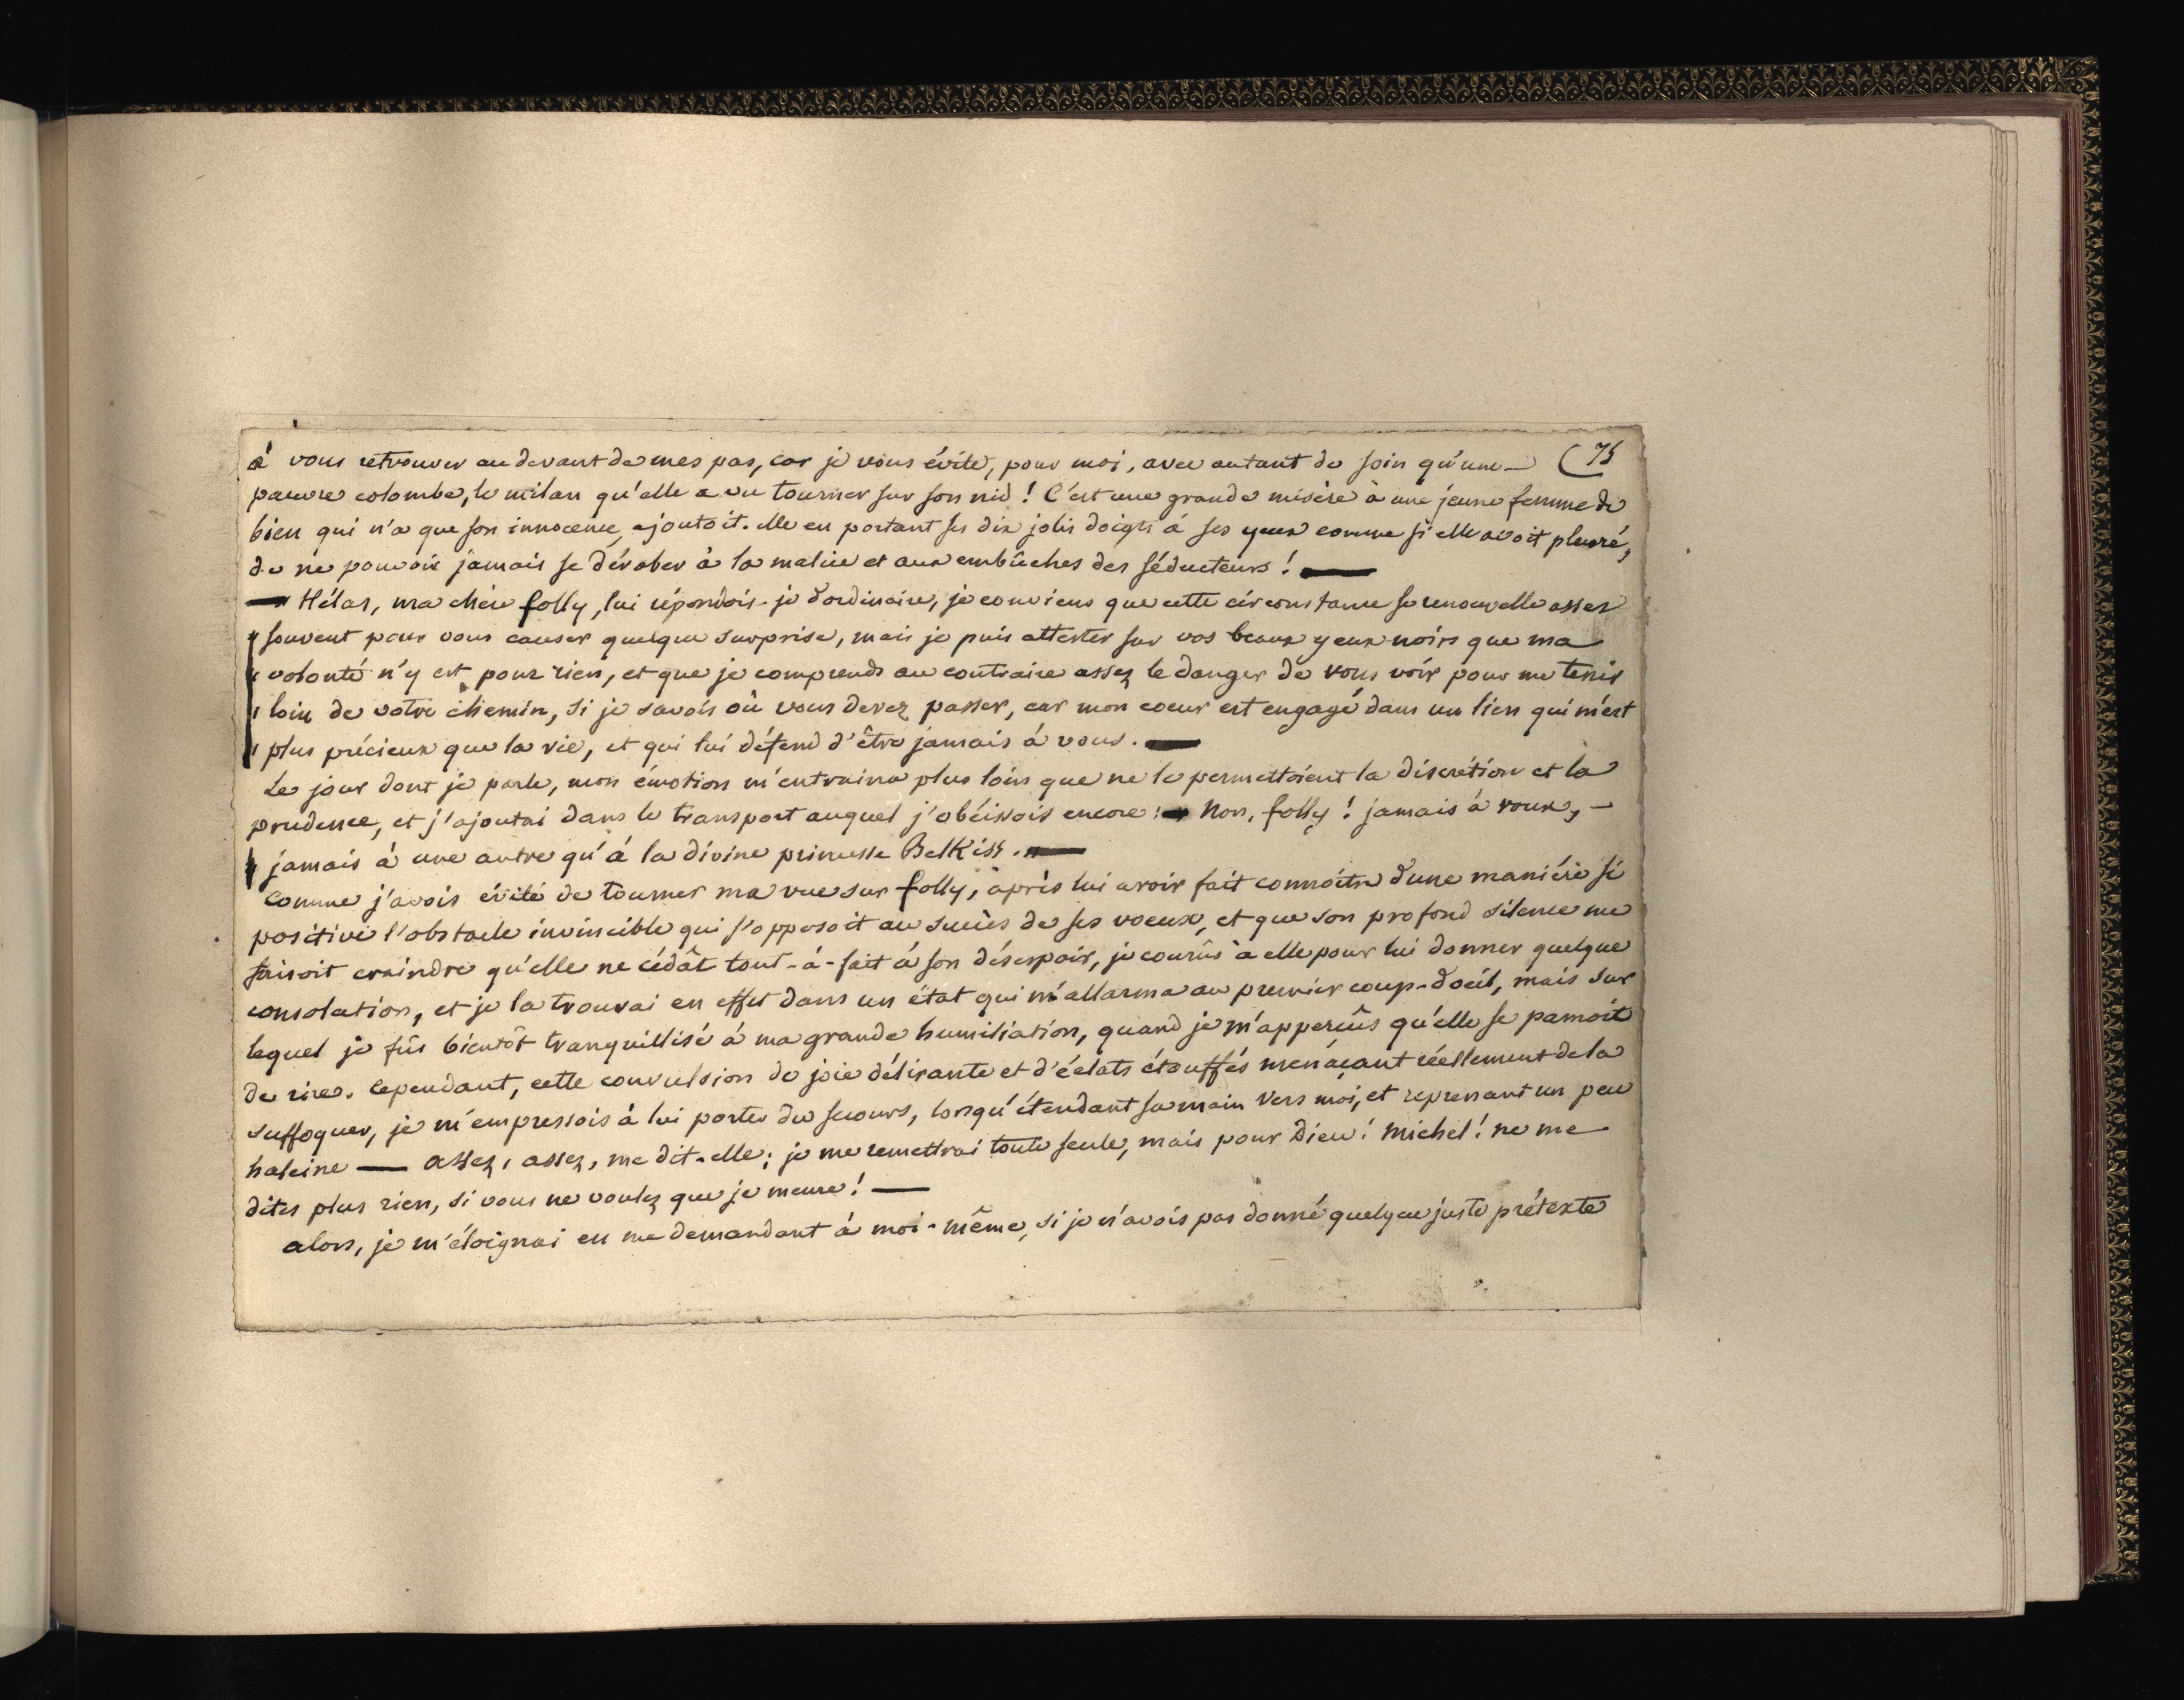 à vous retrouver au devant de mes pas, car je vous évite, pour moi, avec autant de soin qu'une — (75
pauvre colombe, le milan qu'elle a vu tourner sur son nid ! C'est une grande misère à une jeune femme de
bien qui n'a que son innocence, ajoutoit-elle en portant ses dix jolis doigts à ses yeux comme si elle avoit pleuré,
de ne pouvoir jamais se dérober à la malice et aux embûches des séducteurs ! —
— Hélas, ma chère folly, lui répondois-je d'ordinaire, je conviens que cette circonstance se renouvelle assez
souvent pour vous causer quelque surprise, mais je puis attester sur vos beaux yeux noirs que ma
volonté n'y est pour rien, et que je comprends au contraire assez le danger de vous voir pour me tenir
loin de votre chemin, si je savois où vous devez passer, car mon coeur est engagé dans un lien qui m'est
plus précieux que la vie, et qui lui défend d'être jamais à vous. —
Le jour dont je parle, mon émotion m'entraina plus loin que ne le permettoient la discrétion et la
prudence, et j'ajoutai dans le transport auquel j'obéissois encore : — Non, folly ! jamais à vous, —
jamais à une autre qu'à la divine princesse Belkiss. —
Comme j'avois évité de tourner ma vue sur folly, après lui avoir fait connoître d'une manière si
positive l'obstacle invincible qui s'opposoit au succès de ses voeux, et que son profond silence me
faisoit craindre qu'elle ne cédât tout-à-fait à son désespoir, je courûs à elle pour lui donner quelque
consolation, et je la trouvai en effet dans un état qui m'allarma au premier coup-d'oeil, mais sur
lequel je fus bientôt tranquillisé à ma grande humiliation, quand je m'apperçûs qu'elle se pamoit
de rire. Cependant, cette convulsion de joie délirante et d'éclats étouffés menaçant réellement de la
suffoquer, je m'empressois à lui porter du secours, lorsqu'étendant sa main vers moi, et reprenant un peu
haleine — assez, assez, me dit-elle ; je me remettrai toute seule, mais pour Dieu ! Michel ! ne me
dites plus rien, si vous ne voulez que je meure ! —
alors, je m'éloignai en me demandant à moi-même, si je n'avois pas donné quelque juste prétexte